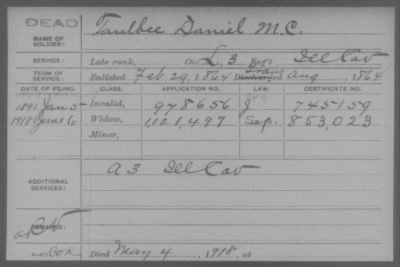 DEAD
NAME OF SOLDIER: Taulbee Daniel M.C.
SERVICE: Late rank, Co. L. 3 Reg't Ill Cav
TERM OF SERVICE: Enlisted Feb 29, 1864 Aug , 1864
DATE OF FILING. CLASS. APPLICATION NO. LAW. CERTIFICATE NO.
1891 Jan 5 Invalid, 978656 J 745159
1918 June 6 Widow, 1,121,497 Sep. 853,023
Minor,
ADDITIONAL SERVICES: A 3 Ill Cav
REMARKS:
Died May 4 , 1918, at